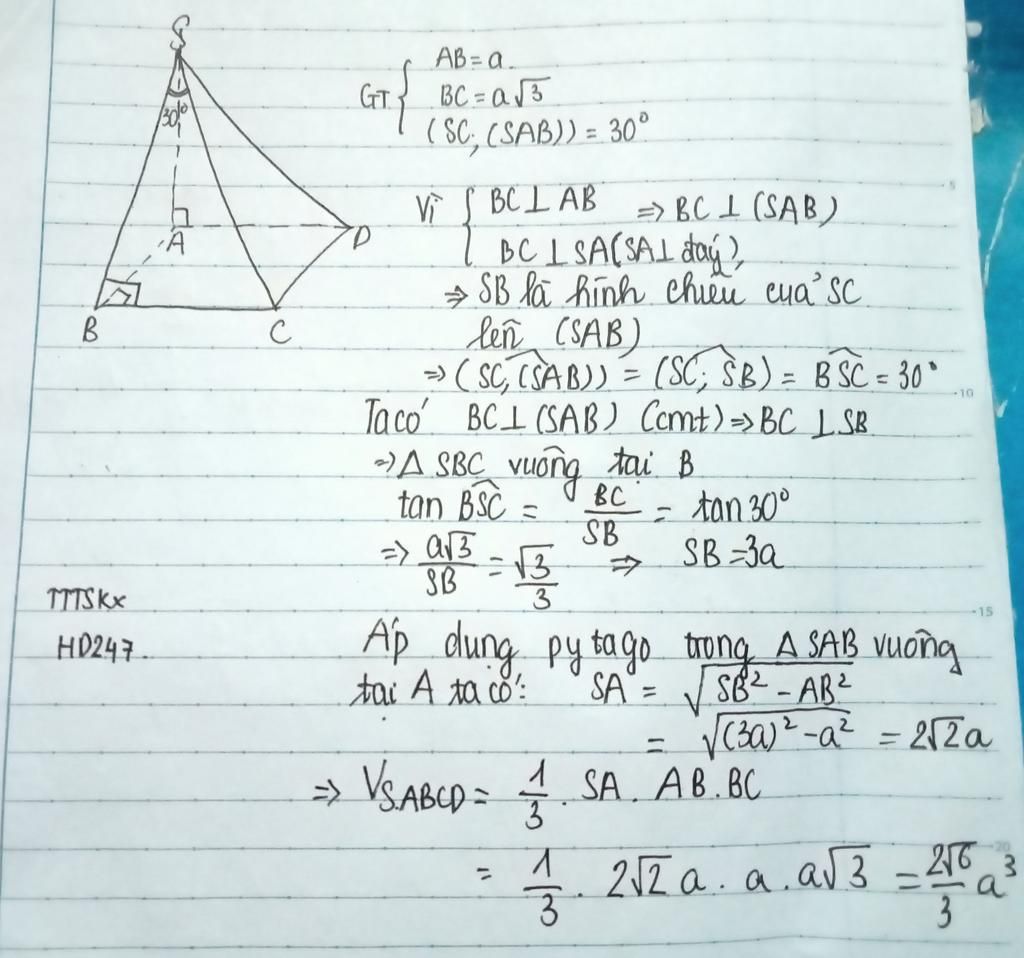 S
30°
A
D
B
C
GT { AB = a.
BC = a√3
(SC; (SAB)) = 30°
Vì { BC ⊥ AB ⇒ BC ⊥ (SAB)
BC ⊥ SA (SA ⊥ đáy)
⇒ SB là hình chiếu của SC
lên (SAB)
⇒ (SC, (SAB)) = (SC; SB) = BSC = 30°
Ta có BC ⊥ (SAB) (cmt) ⇒ BC ⊥ SB
⇒ Δ SBC vuông tại B
tan BSC = BC/SB = tan 30°
⇒ a√3/SB = √3/3 ⇒ SB = 3a
TTTSKx
HD247.
Áp dụng pytago trong Δ SAB vuông
tại A ta có: SA = √(SB² - AB²)
= √((3a)² - a²) = 2√2a
⇒ VS.ABCD = 1/3 . SA . AB . BC
= 1/3 . 2√2a . a . a√3 = 2√6/3 a³
5
10
15
20